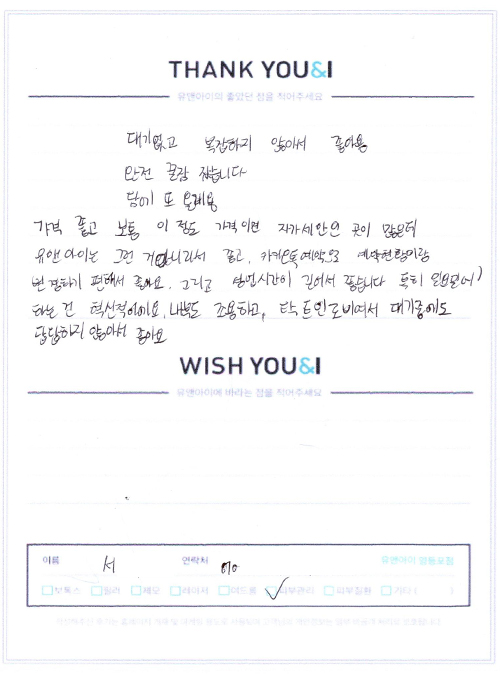 THANK YOU&I
유앤아이의 좋았던 점을 적어주세요
대기없고 복잡하지 않아서 좋아용
완전 꿀잠 잤습니다
담에 또 올게용
가격 좋고 보통 이 정도 가격이면 자가세안인 곳이 많은데
유앤아이는 그런 게 아니라서 좋고, 카카오톡예약으로 예약현황이랑
변경하기 편해서 좋아요. 그리고 영업시간이 길어서 좋습니다 특히 일요일에
하는 건 혁신적이에요, 내부도 조용하고, 탁 트인 로비여서 대기중에도
답답하지 않아서 좋아요
WISH YOU&I
유앤아이에 바라는 점을 적어주세요
이름 서 연락처 010 유앤아이
보톡스 필러 제모 레이저 여드름 피부관리 피부질환 기타 ( )